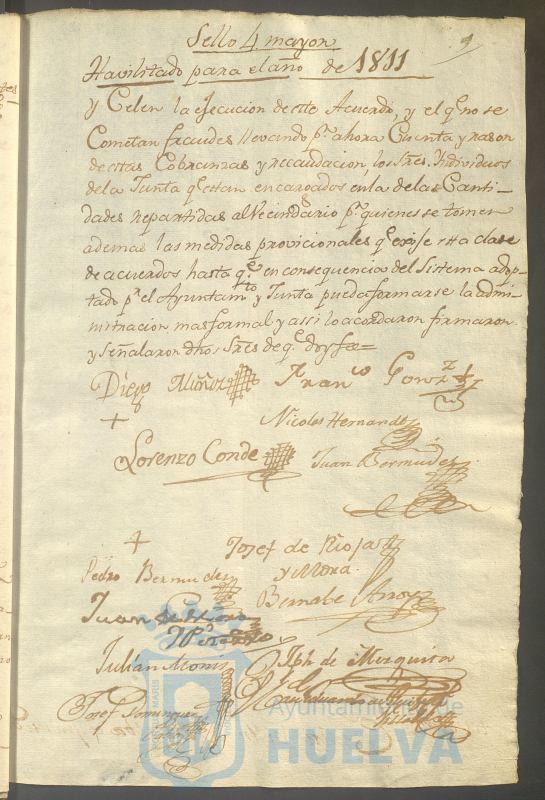 Sello 4 mayor
9
Havilitado para el año de 1811
y Celen la ejecucion de este Acuerdo, y el qe. no se
Cometan fraudes llevando pr. ahora Cuenta y rason
de estas Cobranzas y recaudacion, los Sres. Individuos
de la Junta qe. estan encargados en la de las Canti-
dades repartidas al Vecindario pr. quienes se tomen
ademas las medidas provicionales qe. exije esta clase
de acuerdos hasta qe. en consequencia del Sistema adop-
tado pr. el Ayuntamto. y Junta pueda formarse la admi-
nistracion mas formal y assi lo acordaron firmaron
y señalaron dhos Sres de qe. doy fee=
Diego Muñoz Franco Gonz
+ Nicolas Hernandz
Lorenzo Conde Juan Bermudez
+ Josef de Rioja
Pedro Bermudez y Mora
Juan de Bernabe Arroyo
Julian Monis Jph de Mezquita
Josef Dominguez
Ayuntamiento de
HUELVA